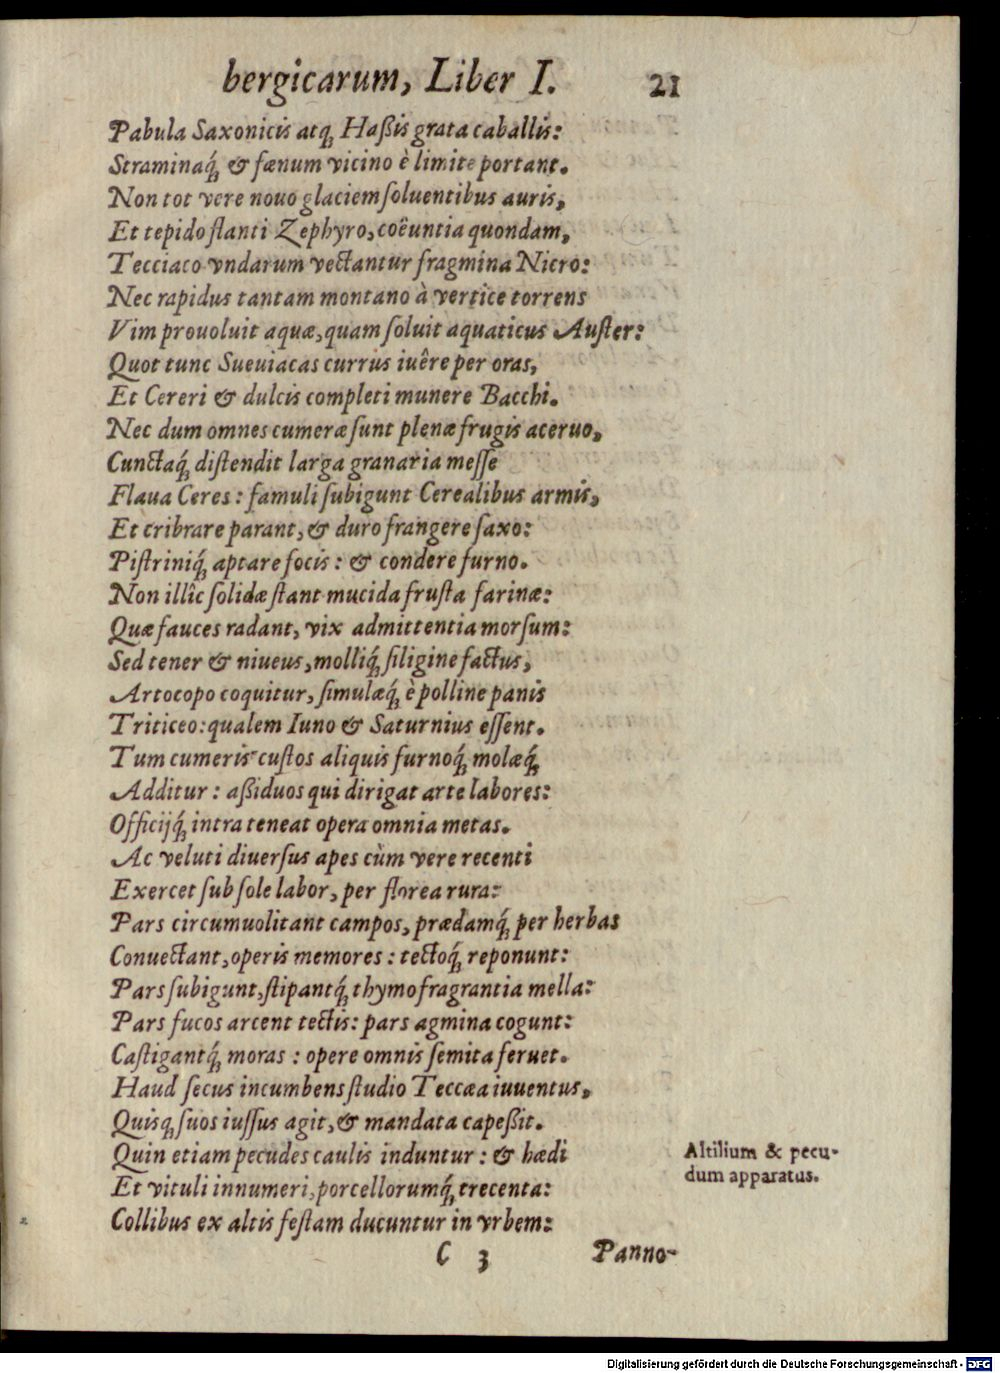 bergicarum, Liber I. 21
Pabula Saxonicis atq́; Haßis grata caballis:
Straminaq́; & fænum vicino è limite portant.
Non tot vere nouo glaciem soluentibus auris,
Et tepido flanti Zephyro, coêuntia quondam,
Tecciaco vndarum vectantur fragmina Nicro:
Nec rapidus tantam montano à vertice torrens
Vim prouoluit aquæ, quam soluit aquaticus Auster:
Quot tunc Sueuiacas currus iuêre per oras,
Et Cereri & dulcis completi munere Bacchi.
Nec dum omnes cumeræ sunt plenæ frugis aceruo,
Cunctaq́; distendit larga granaria messe
Flaua Ceres: famuli subigunt Cerealibus armis,
Et cribrare parant, & duro frangere saxo:
Pistriniq́; aptare focis: & condere furno.
Non illîc solidæ stant mucida frusta farinæ:
Quæ fauces radant, vix admittentia morsum:
Sed tener & niueus, molliq́; siligine factus,
Artocopo coquitur, simulæq́; è polline panis
Triticeo: qualem Iuno & Saturnius essent.
Tum cumeris custos aliquis furnoq́; molæq́;
Additur: aßiduos qui dirigat arte labores:
Officijq́; intra teneat opera omnia metas.
Ac veluti diuersus apes cùm vere recenti
Exercet sub sole labor, per florea rura:
Pars circumuolitant campos, prædamq́; per herbas
Conuectant, operis memores: tectoq́; reponunt:
Pars subigunt, stipantq́; thymo fragrantia mella:
Pars fucos arcent tectis: pars agmina cogunt:
Castigantq́; moras: opere omnis semita feruet.
Haud secus incumbens studio Teccæa iuuentus,
Quisq; suos iussus agit, & mandata capeßit.
Quin etiam pecudes caulis induntur: & hædi
Et vituli innumeri, porcellorumq́; trecenta:
Collibus ex altis festam ducuntur in vrbem:
Altilium & pecu-
dum apparatus.
C 3 Panno-
Digitalisierung gefördert durch die Deutsche Forschungsgemeinschaft - DFG